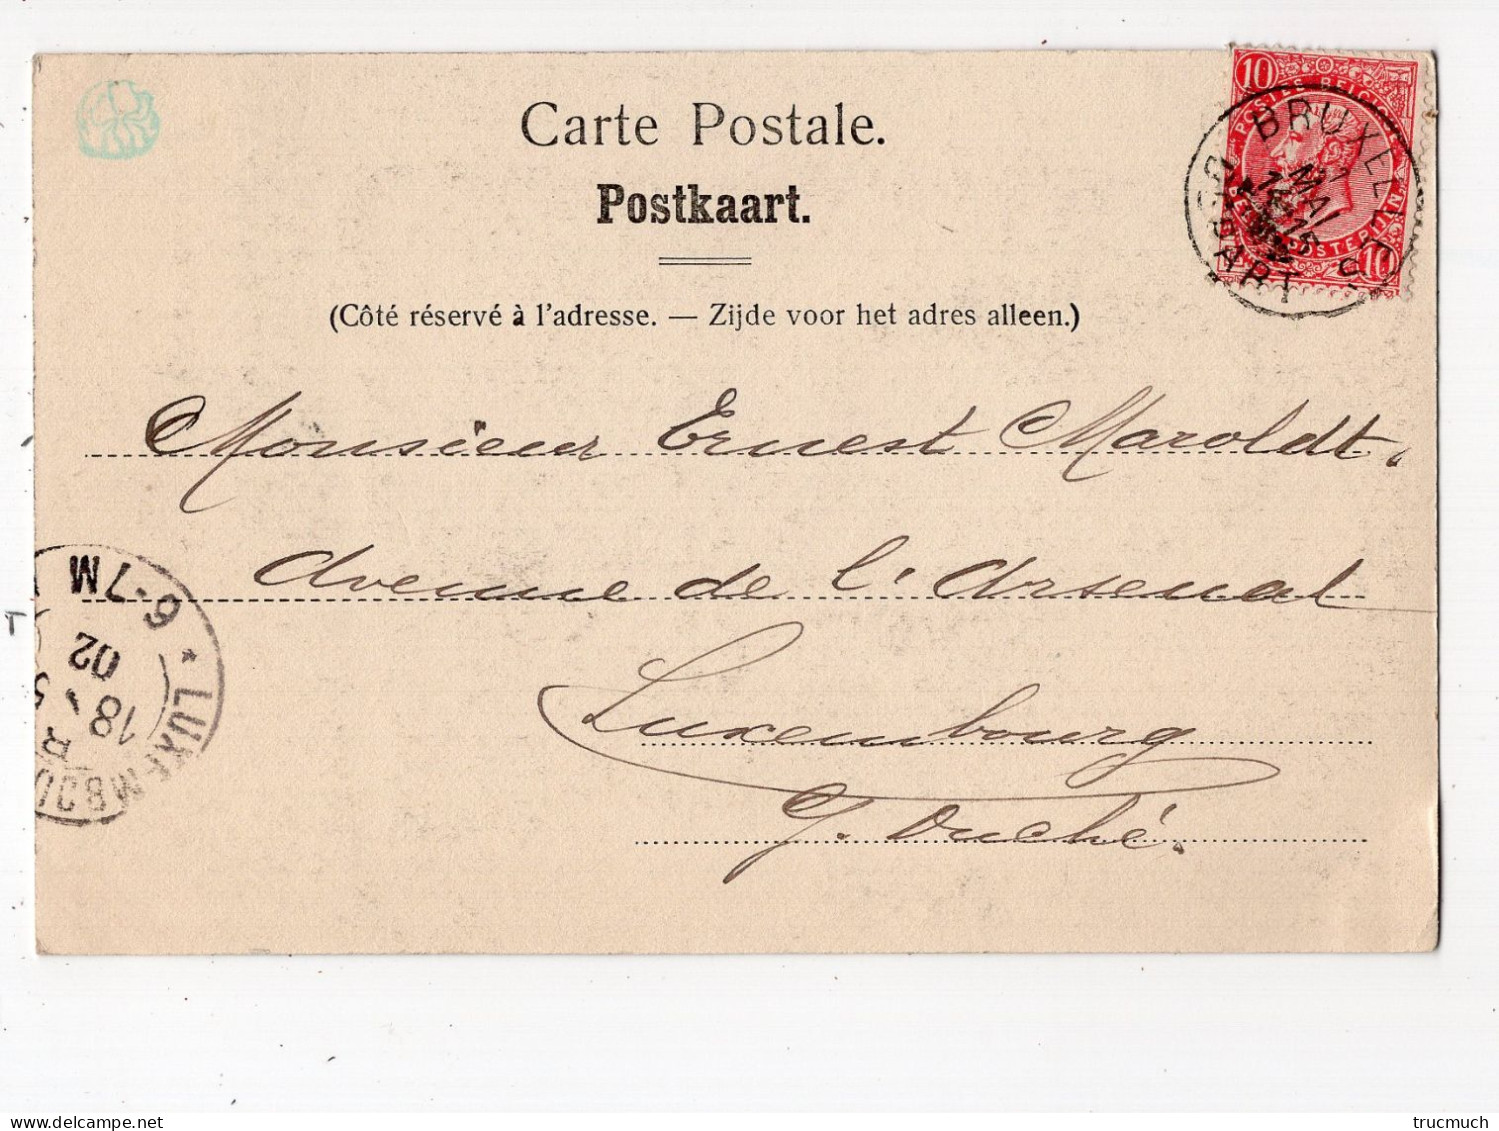 Carte Postale.
Postkaart.
(Côté réservé à l'adresse. — Zijde voor het adres alleen.)
10
POSTES BELGIQUE
10
BRUXELLES
MAI
DÉPART
Monsieur Ernest Maroldt.
Avenue de l'Arsenal
Luxembourg
G. Duché.
6-7M
18 5 02
* LUXEMBOU
trucmuch